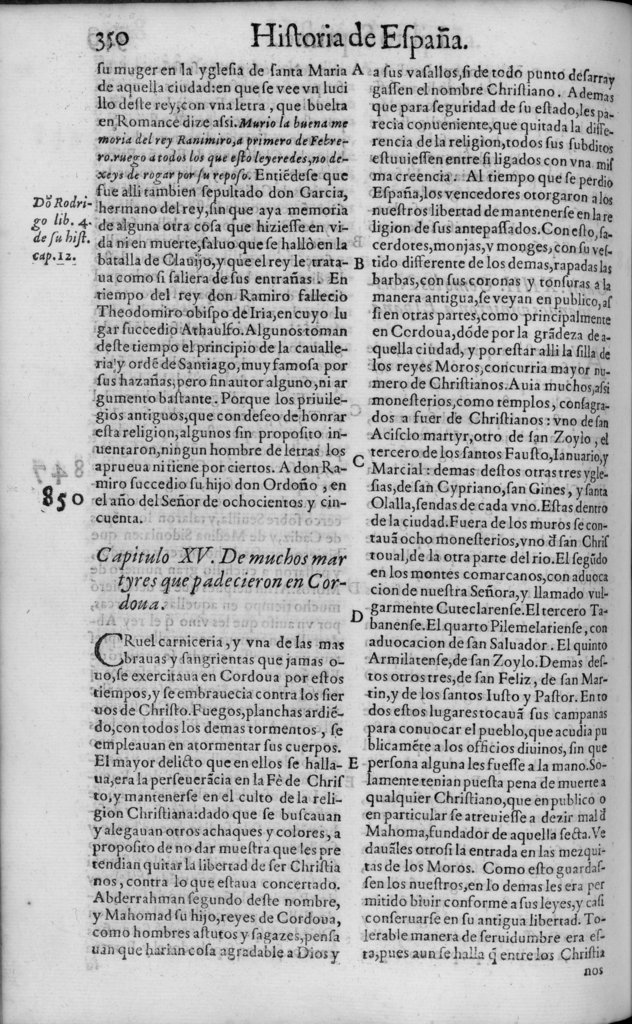 350
Historia de España.
su muger en la yglesia de santa Maria
de aquella ciudad: en que se vee vn luci
llo deste rey, con vna letra, que buelta
en Romance dize assi. Murio la buena me
moria del rey Ranimiro, a primero de Febre-
ro. ruego a todos los que esto leyeredes, no de-
xeys de rogar por su reposo. Entiēdese que
fue alli tambien sepultado don Garcia,
hermano del rey, sin que aya memoria
de alguna otra cosa que hiziesse en vi-
da ni en muerte, saluo que se hallò en la
batalla de Clauijo, y que el rey le trata-
ua como si saliera de sus entrañas. En
tiempo del rey don Ramiro fallecio
Theodomiro obispo de Iria, en cuyo lu
gar succedio Athaulfo. Algunos toman
deste tiempo el principio de la caualle-
ria y ordē de Santiago, muy famosa por
sus hazañas, pero sin autor alguno, ni ar
gumento bastante. Porque los priuile-
gios antiguos, que con deseo de honrar
esta religion, algunos sin proposito in-
uentaron, ningun hombre de letras los
aprueua ni tiene por ciertos. A don Ra-
miro succedio su hijo don Ordoño, en
el año del Señor de ochocientos y cin-
cuenta.
Dō Rodri-
go lib. 4.
de su hist.
cap. 12.
850
Capitulo XV. De muchos mar
tyres que padecieron en Cor-
doua.
CRuel carniceria, y vna de las mas
brauas y sangrientas que jamas o-
uo, se exercitaua en Cordoua por estos
tiempos, y se embrauecia contra los sier
uos de Christo. Fuegos, planchas ardiē-
do, con todos los demas tormentos, se
empleauan en atormentar sus cuerpos.
El mayor delicto que en ellos se halla-
ua, era la perseuerācia en la Fè de Chris
to, y mantenerse en el culto de la reli-
gion Christiana: dado que se buscauan
y alegauan otros achaques y colores, a
proposito de no dar muestra que les pre
tendian quitar la libertad de ser Christia
nos, contra lo que estaua concertado.
Abderrahman segundo deste nombre,
y Mahomad su hijo, reyes de Cordoua,
como hombres astutos y sagazes, pensa
uan que harian cosa agradable a Dios y
A
B
C
D
E
a sus vasallos, si de todo punto desarray
gassen el nombre Christiano. Ademas
que para seguridad de su estado, les pa-
recia conueniente, que quitada la diffe-
rencia de la religion, todos sus subditos
estuuiessen entre si ligados con vna mis
ma creencia. Al tiempo que se perdio
España, los vencedores otorgaron a los
nuestros libertad de mantenerse en la re
ligion de sus antepassados. Con esto, sa-
cerdotes, monjas, y monges, con su ves-
tido differente de los demas, rapadas las
barbas, con sus coronas y tonsuras a la
manera antigua, se veyan en publico, as
si en otras partes, como principalmente
en Cordoua, dōde por la grādeza de a-
quella ciudad, y por estar alli la silla de
los reyes Moros, concurria mayor nu-
mero de Christianos. Auia muchos, assi
monesterios, como templos, consagra-
dos a fuer de Christianos: vno de san
Acisclo martyr, otro de san Zoylo, el
tercero de los santos Fausto, Ianuario, y
Marcial: demas destos otras tres ygle-
sias, de san Cypriano, san Gines, y santa
Olalla, sendas de cada vno. Estas dentro
de la ciudad. Fuera de los muros se con-
tauā ocho monesterios, vno đ san Chris
toual, de la otra parte del rio. El segūdo
en los montes comarcanos, con aduoca
cion de nuestra Señora, y llamado vul-
garmente Cuteclarense. El tercero Ta-
banense. El quarto Pilemelariense, con
aduocacion de san Saluador. El quinto
Armilatense, de san Zoylo. Demas des-
tos otros tres, de san Feliz, de san Mar-
tin, y de los santos Iusto y Pastor. En to
dos estos lugares tocauā sus campanas
para conuocar el pueblo, que acudia pu
blicamēte a los officios diuinos, sin que
persona alguna les fuesse a la mano. So-
lamente tenian puesta pena de muerte a
qualquier Christiano, que en publico o
en particular se atreuiesse a dezir mal đ
Mahoma, fundador de aquella secta. Ve
dauāles otrosi la entrada en las mezqui-
tas de los Moros. Como esto guardas-
sen los nuestros, en lo demas les era per
mitido biuir conforme a sus leyes, y casi
conseruarse en su antigua libertad. To-
lerable manera de seruidumbre era es-
ta, pues aun se halla q̄ entre los Christia
nos